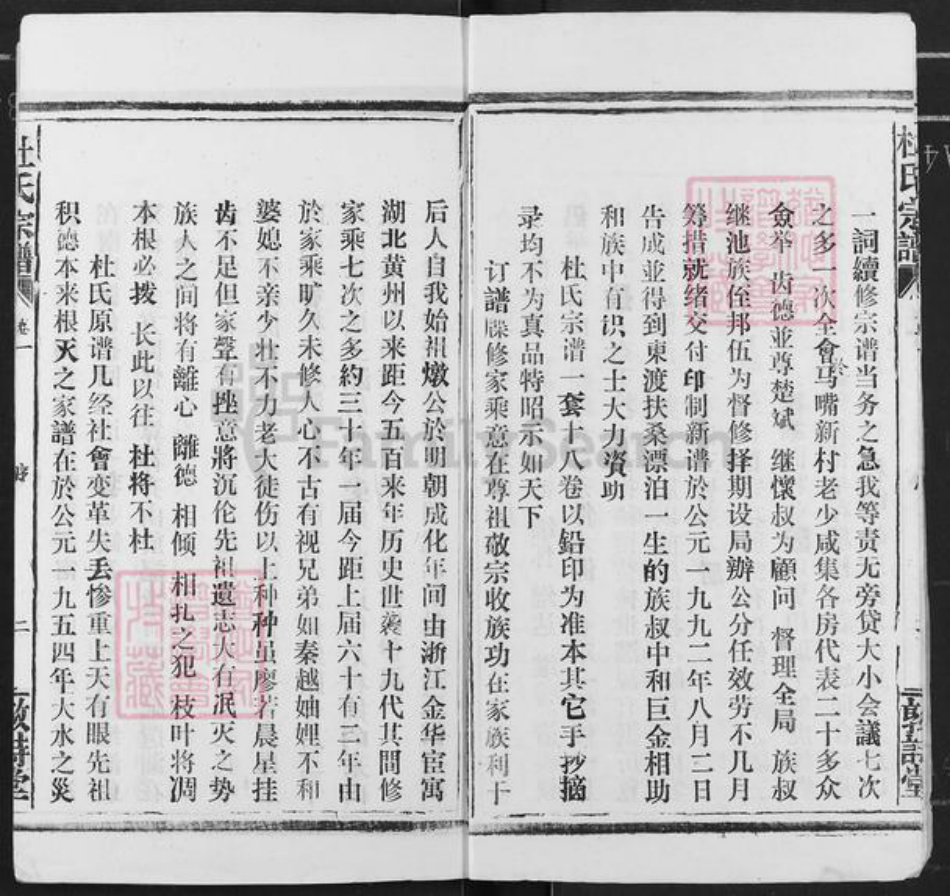 杜氏宗譜
一詞續修宗谱当务之急我等責无旁贷大小会議七次
之多一次全會於马嘴新村老少咸集各房代表二十多众
僉举 齿德並尊楚斌 继懷叔为顧问 督理全局 族叔
继池族侄邦伍为督修择期设局辦公分任效劳不几月
筹措就绪交付印制新谱於公元一九九二年八月二日
告成並得到東渡扶桑漂泊一生的族叔中和巨金相助
和族中有识之士大力资助
杜氏宗谱一套十八卷以铅印为准本其它手抄摘
录均不为真品特昭示如天下
订譜牒修家乘意在尊祖敬宗收族功在家族利于
后人自我始祖燉公於明朝成化年间由浙江金华宦寓
湖北黄州以来距今五百来年历史世襲十九代其間修
家乘七次之多約三十年一届今距上届六十有三年由
於家乘旷久未修人心不古有视兄弟如秦越妯娌不和
婆媳不亲少壮不力老大徒伤以上种种虽廖若晨星挂
齿不足但家聲有挫意將沉伦先祖遺志大有泯灭之势
族人之间将有離心 離德 相倾 相扎之犯 枝叶将凋
本根必拨 长此以往 杜将不杜
杜氏原谱几经社會变革失丢惨重上天有眼先祖
积德本来根灭之家譜在於公元一九五四年大水之災
杜氏宗譜
卷一
二
Family Search